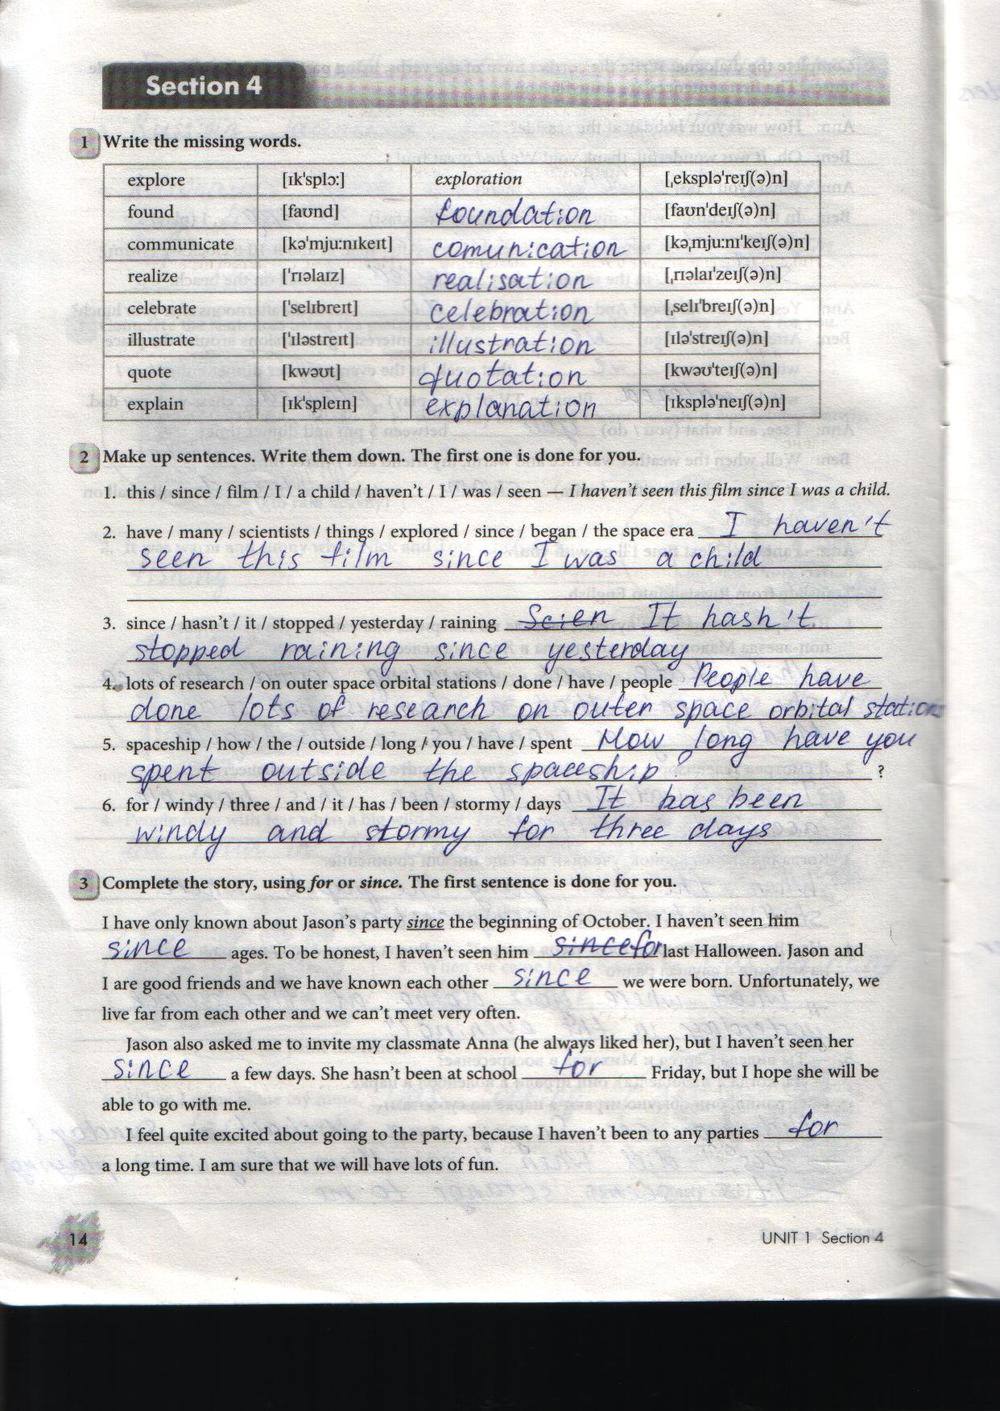 Section 4
1 Write the missing words.
explore [ɪk'splɔ:] exploration [ˌeksplə'reɪʃ(ə)n]
found [faʊnd] foundation [faʊn'deɪʃ(ə)n]
communicate [kə'mju:nɪkeɪt] comunication [kəˌmju:nɪ'keɪʃ(ə)n]
realize ['rɪəlaɪz] realisation [ˌrɪəlaɪ'zeɪʃ(ə)n]
celebrate ['selɪbreɪt] celebration [ˌselɪ'breɪʃ(ə)n]
illustrate ['ɪləstreɪt] illustration [ɪlə'streɪʃ(ə)n]
quote [kwəʊt] quotation [kwəʊ'teɪʃ(ə)n]
explain [ɪk'spleɪn] explanation [ɪksplə'neɪʃ(ə)n]
2 Make up sentences. Write them down. The first one is done for you.
1. this / since / film / I / a child / haven't / I / was / seen — I haven't seen this film since I was a child.
2. have / many / scientists / things / explored / since / began / the space era I haven't
seen this film since I was a child
3. since / hasn't / it / stopped / yesterday / raining Scien It hash't
stopped raining since yesterday
4. lots of research / on outer space orbital stations / done / have / people People have
done lots of research on outer space orbital stations
5. spaceship / how / the / outside / long / you / have / spent How long have you
spent outside the spaceship ?
6. for / windy / three / and / it / has / been / stormy / days It has been
windy and stormy for three days
3 Complete the story, using for or since. The first sentence is done for you.
I have only known about Jason's party since the beginning of October. I haven't seen him
since ages. To be honest, I haven't seen him since for last Halloween. Jason and
I are good friends and we have known each other since we were born. Unfortunately, we
live far from each other and we can't meet very often.
Jason also asked me to invite my classmate Anna (he always liked her), but I haven't seen her
since a few days. She hasn't been at school for Friday, but I hope she will be
able to go with me.
I feel quite excited about going to the party, because I haven't been to any parties for
a long time. I am sure that we will have lots of fun.
14
UNIT 1 Section 4